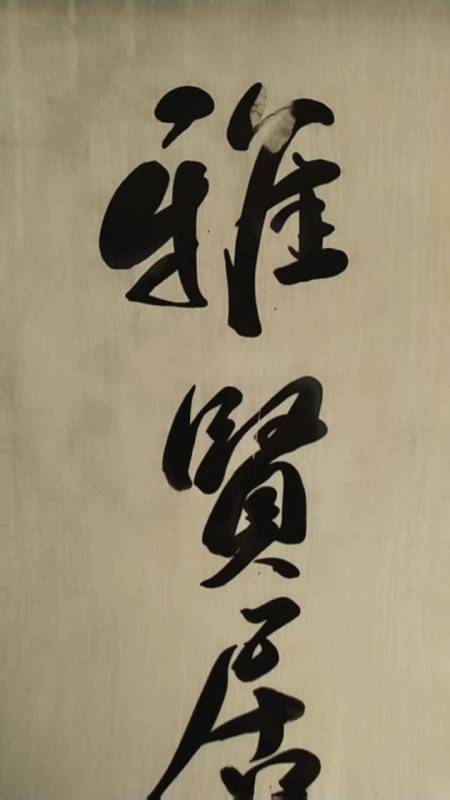 雅賢居